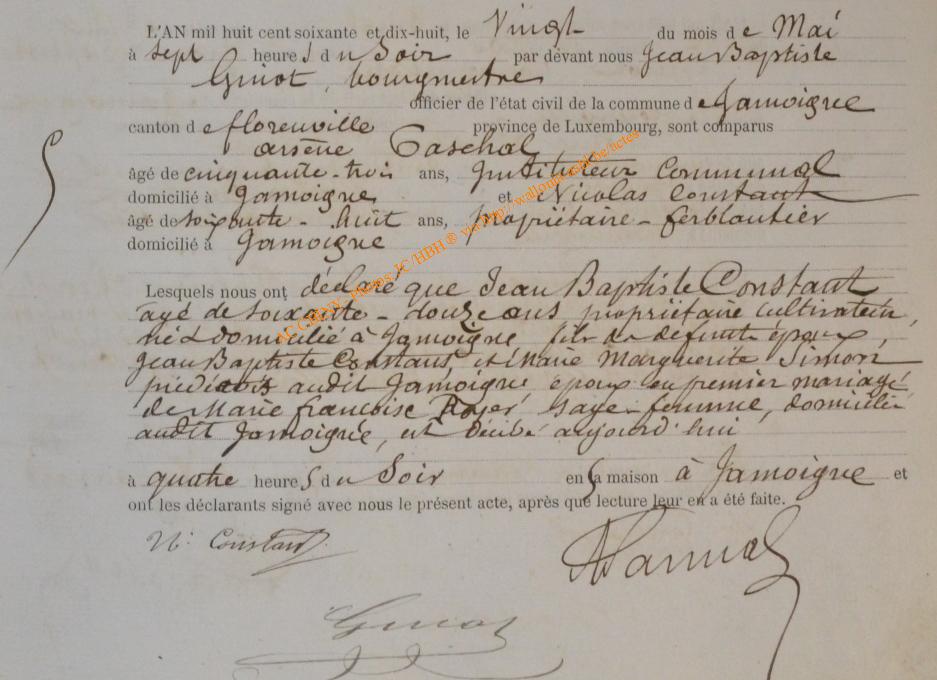 L'AN mil huit cent soixante et dix-huit, le Vingt du mois de Mai
à Sept heures du Soir par devant nous Jean Baptiste
Guiot, bourgmestre
officier de l'état civil de la commune de Jamoigne
canton de florenville province de Luxembourg, sont comparus
arsène Paschal
âgé de cinquante-trois ans, Instituteur Communal
domicilié à Jamoigne et Nicolas Constant
âgé de soixante-huit ans, propriétaire-ferblantier
domicilié à Jamoigne
Lesquels nous ont déclaré que Jean Baptiste Constant
agé de soixante-douze ans, propriétaire cultivateur,
né & domicilié à Jamoigne, fils de défunts époux,
Jean Baptiste Constant, et Marie Marguerite Simon
audit Jamoigne, époux en premier mariage
de Marie françoise sage-femme, domiciliée
audit Jamoigne, est décédé aujourd'hui
à quatre heures du Soir en sa maison à Jamoigne et
ont les déclarants signé avec nous le présent acte, après que lecture leur en a été faite.
N. Constant
Guiot
ACCBLW - Photos JC/HBH® via http://wallonica
.be/actes